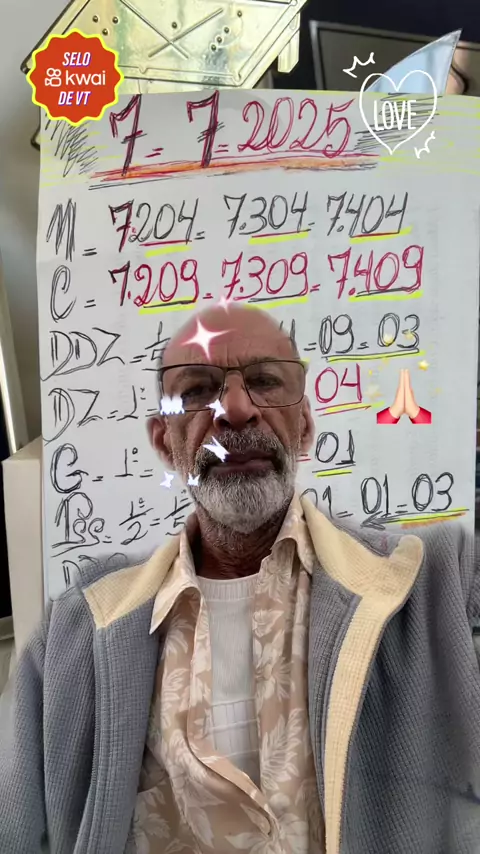 SELO
kwai
DE VT
LOVE
7=7=2025
M = 7.204= 7.304= 7.404
C = 7.209= 7.309= 7.409
DDZ = =09=03
DZ = 1º 04
G = 1º 01
Pss = 1º/2 = 01=03